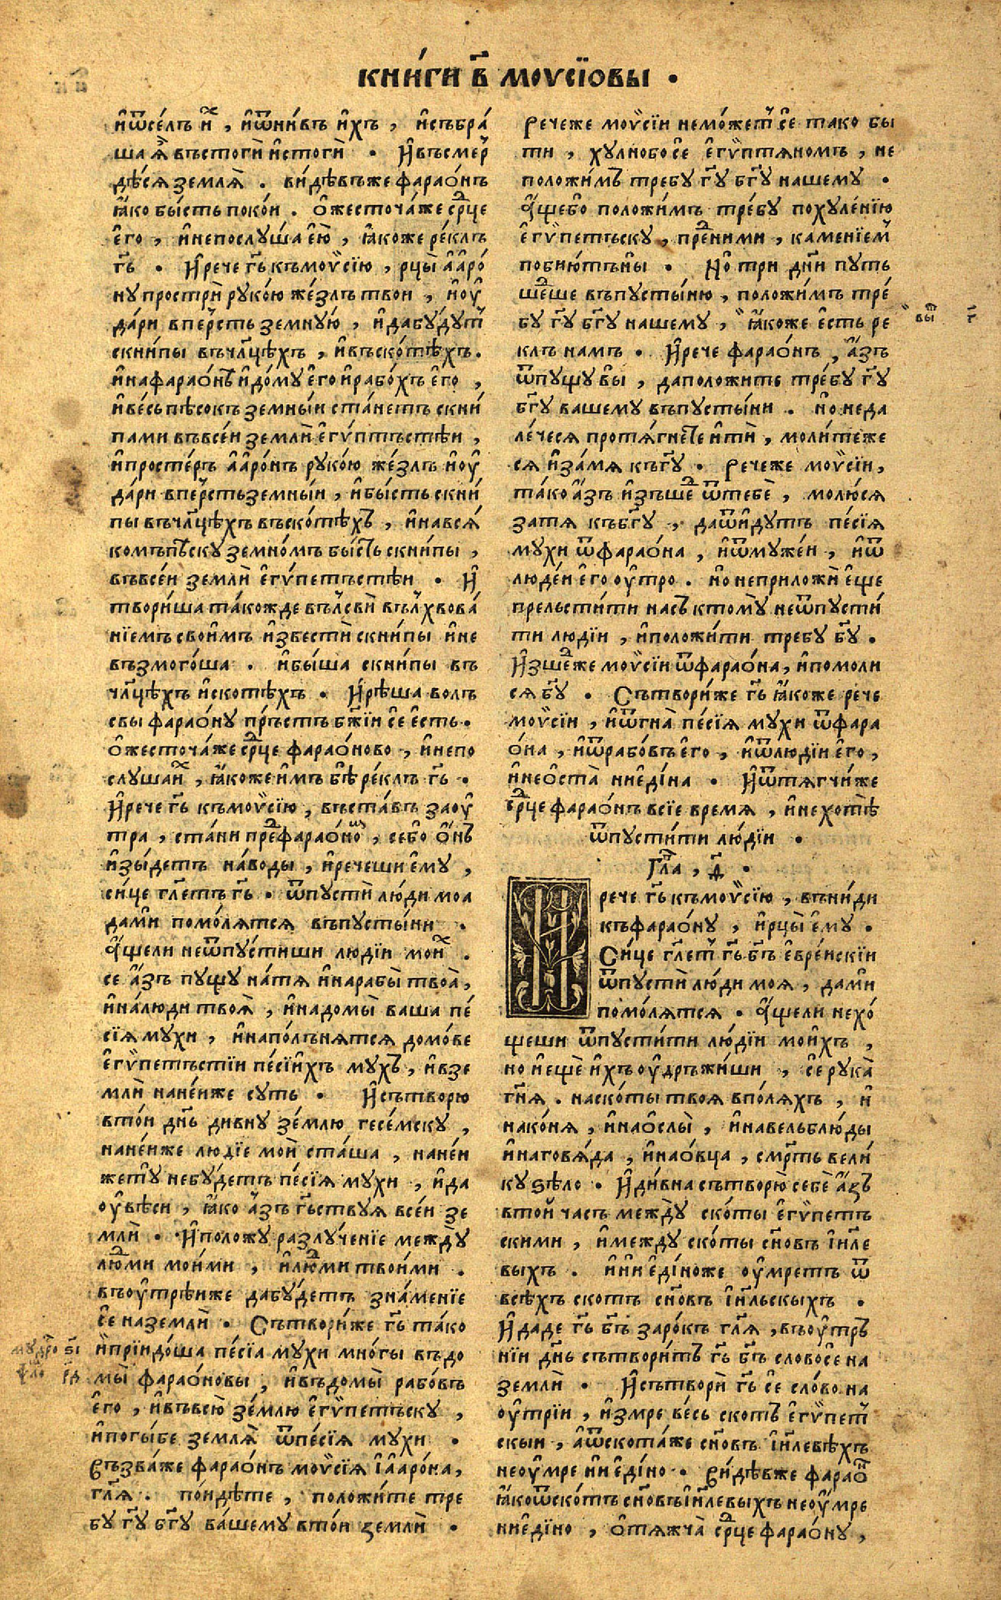 КНИ́ГИ В҃ МОУСІ́ОВЫ ·
и҆ѿсе́лъ и҆х , и҆ѿни́въ и҆хъ , и҆събра́
ша ꙗ҆̀ въстоги̂ и҆стоги̂ · И҆въсмер
дѣ́сѧ землѧ̀ . ви́дѣвъже фарао́нъ
ꙗ҆́ко бы́сть поко́и . ѻ҆жесточа́же ср҃це
е҆го̀ , и҆непослу́ша е҆ю̀ , ꙗ҆́коже ре́клъ
г҃ь · И҆рече г҃ь къмоѵ̈сі́ю , рцы̀ а҆аро́
ну прострѝ руко́ю же́злъ твои , и҆оу҆
да́ри в пе́рсть земную́ , и҆ да бу́дут
скни́пы въчл҃цѣхъ , и҆въско́тѣхъ .
и҆нафарао́нѣ и҆до́му е҆го̀ и҆рабо́хъ е҆го̀ ,
и҆ве́сь пѣсо́къ зе́мныи ста́нетъ скни́
пами въвсе́и землѝ е҆гѵ́птьстѣи ,
и҆просте́ръ а҆аро́нъ руко́ю же́злъ и҆оу҆
да́ри в пе́рсть земны́и , и҆бы́сть скни́
пы въчл҃цѣхъ въско́тѣхъ , и҆навсѧ́
комъ пѣску земно́мъ бы́сть скни́пы ,
въвсе́и землѝ е҆гѵ́петьстѣи · И҆
твори́ша та́кожде въ́лъсви̂ въл҃хвова́
нїемъ свои́мъ и҆звести̂ скни́пы и҆ не
възмого́ша . и҆бы́ша скни́пы въ
чл҃цѣхъ и҆ско́тѣхъ · И҆рѣ́ша волъ
свы фарао́ну пе́рстъ бж҃їи се́ е҆сть .
ѻ҆жесточа́же ср҃це фарао́ново , и҆непо
слу́ша и҆х , ꙗ҆́коже и҆́мъ бѣ̀ ре́клъ г҃ь ·
И҆рече г҃ь къмоѵ̈сі́ю , въста́въ заоу҆
тра , ста́ни пред фарао́ном , се́бо ѻ҆́нъ
и҆зы́детъ на́воды , и҆рече́ши е҆му́ ,
си́це гл҃етъ г҃ь · ѿпусти̂ лю́ди моа
да ми помо́лѧтсѧ въпусты́ни .
а҆́щели неѿпу́стиши людїи мои́х .
се а҆́зъ пущу на́тѧ и҆нарабы̀ твоѧ̀ ,
и҆на́люди твоѧ̀ , и҆надомы̀ ваша пе́
сїѧ му́хи , и҆напо́лънѧтсѧ домо́ве
е҆гѵ́петьстїи пе́сїихъ мухъ , и҆взе
мли̂ нане́иже суть · И҆сътворю
вто́и дн҃ь дивну зе́млю гесе́мску ,
нане́иже людїе мои̂ ста́ша , нане́и
же ту небу́детъ пе́сїѧ му́хи , и҆ да
оу҆вѣ́си , ꙗ҆́ко а҆́зъ г҃ьствуѧ все́и зе
мли̂ · И҆положу разлуче́нїе между̀
людми мои́ми , и҆людми твои́ми .
въоу҆трѣ́иже дабу́детъ зна́менїе
се́ наземли̂ · Сътвори́же г҃ь та́ко
и҆прїидо́ша пе́сїа му́хи мно́гы въдо
мы̀ фарао́новы , и҆въдомы̀ рабо́въ
е҆го̀ , и҆въвсю̀ зе́млю е҆гѵ́петьску ,
и҆поги́бе землѧ̀ ѿпе́сїѧ му́хи .
Възва́же фарао́нъ моѵ̈сїѧ і҆аро́на ,
гл҃ѧ . поидѣ́те , положи́те тре
бу г҃у бг҃у ва́шему вто́и земли̂ ·
мудро 
рече́же моѵ̈сїи немо́жет се́ тако бы
ти , хулнобо се̂ е҆гѵ́птѧномъ , не
положи́мъ требу г҃у бг҃у нашему .
а҆́щебо положи́мъ тре́бу похуле́нїю
е҆гѵ́петьску , пред ними , каменїем
побию́тъ ны · Но три дн҃и путь
ше́дше въпусты́ню , положи́мъ тре́
бу г҃у бг҃у нашему , ꙗ҆́коже е҆сть ре
клъ намъ · И҆рече фарао́нъ , а҆́зъ
ѿпущу вы , даположи́те тре́бу г҃у
бг҃у вашему въпусты́ни . но неда
ле́чесѧ протѧ́гнете и҆ти̂ , моли́теже
сѧ и҆за́мѧ къг҃у · Рече́же моѵ̈сїи ,
та́ко а҆́зъ и҆зъшед ѿтебѐ , молю́сѧ
затѧ къбг҃у , даѿидутъ пе́сїѧ
мухи ѿфарао́на , и҆ѿмуже́и , и҆ѿ
люде́и е҆го оу҆тро . но неприложи̂ е҆ще
прельсти́ти насъ ктому̀ неѿпусти́
ти людїи , и҆положи́ти требу бг҃у .
И҆зшедже моѵ̈сїи ѿфарао́на , и҆помоли
сѧ бг҃у · Сътвори́же г҃ь ꙗ҆́коже рече
моѵ̈сїи , и҆ѿгна̀ пе́сїѧ мухи ѿфара
ѻ́на , и҆ѿрабо́въ е҆го̀ , и҆ѿлюдїи е҆го̀ ,
и҆неѻ҆ста̀ ниеди́на · И҆ѿтѧгчи́же
ср҃це фарао́нъ всїе время , и҆нехотѣ̀
ѿпусти́ти лю́дїи ·
Гла , д҃ .
И рече г҃ь къмоѵ̈сі́ю , въни́ди
къфарао́ну , и҆рцы̀ е҆му .
Си́це гл҃ет г҃ь бг҃ъ е҆вре́искїи
ѿпусти̂ лю́ди моѧ , дами
помо́лѧтсѧ · а҆́щели нехо́
щеши ѿпусти́ти лю́дїи мои́хъ ,
но и҆ ещѐ и҆́хъ оу҆дръжи́ши , се рука̀
г҃нѧ . наско́ты твоѧ вполѧхъ , и҆
нако́нѧ , и҆наослы̀ , и҆навельблю́ды
и҆наговѧ́да , и҆наовца , см҃рть вели
ку ѕѣло · И҆ди́вна сътворю̀ себѐ а҆́зъ
втои̂ часъ между̀ ско́ты е҆гѵ́петъ
скими , и҆между ско́ты сн҃овъ і҆и҃ле
выхъ . и҆ни е҆ди́ноже оу҆мретъ ѿ
всѣхъ скотъ сн҃овъ і҆и҃льскыхъ ·
И҆ даде г҃ь бг҃ъ заро́къ гл҃ѧ , въоу҆трь
нїи дн҃ь сътвори́тъ г҃ь бг҃ъ слово се́ на
земли̂ · И҆сътвори̂ г҃ь се̂ сло́во на
оу҆трїи , и҆змре весь скотъ е҆гѵ́пет
скыи , а҆ѿскота́же сн҃овъ і҆и҃левѣхъ
неоу҆мре ни еди́но · Ви́дѣвже фарао
ꙗ҆́коѿско́тъ сн҃овъ і҆и҃левыхъ неоу҆мре
ниеди́но , ѻ҆тѧжча̀ ср҃це фарао́ну ,